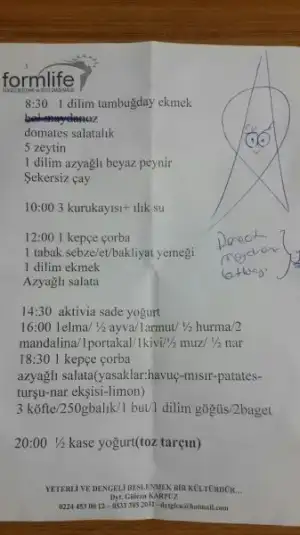 formlife
8:30 1 dilim tambuğday ekmek
bol maydanoz
domates salatalık
5 zeytin
1 dilim azyağlı beyaz peynir
Şekersiz çay
10:00 3 kurukayısı+ ılık su
12:00 1 kepçe çorba
1 tabak sebze/et/bakliyat yemeği
1 dilim ekmek
Azyağlı salata
14:30 aktivia sade yoğurt
16:00 1elma/ ½ ayva/1armut/ ½ hurma/2
mandalina/1portakal/1kivi/½ muz/ ½ nar
18:30 1 kepçe çorba
azyağlı salata(yasaklar:havuç-mısır-patates-
turşu-nar ekşisi-limon)
3 köfte/250gbalık/1 but/1 dilim göğüs/2baget
20:00 ½ kase yoğurt(toz tarçın)
YETERLİ VE DENGELİ BESLENMEK BİR KÜLTÜRDÜR...
Dyt. Gülcin KARPUZ